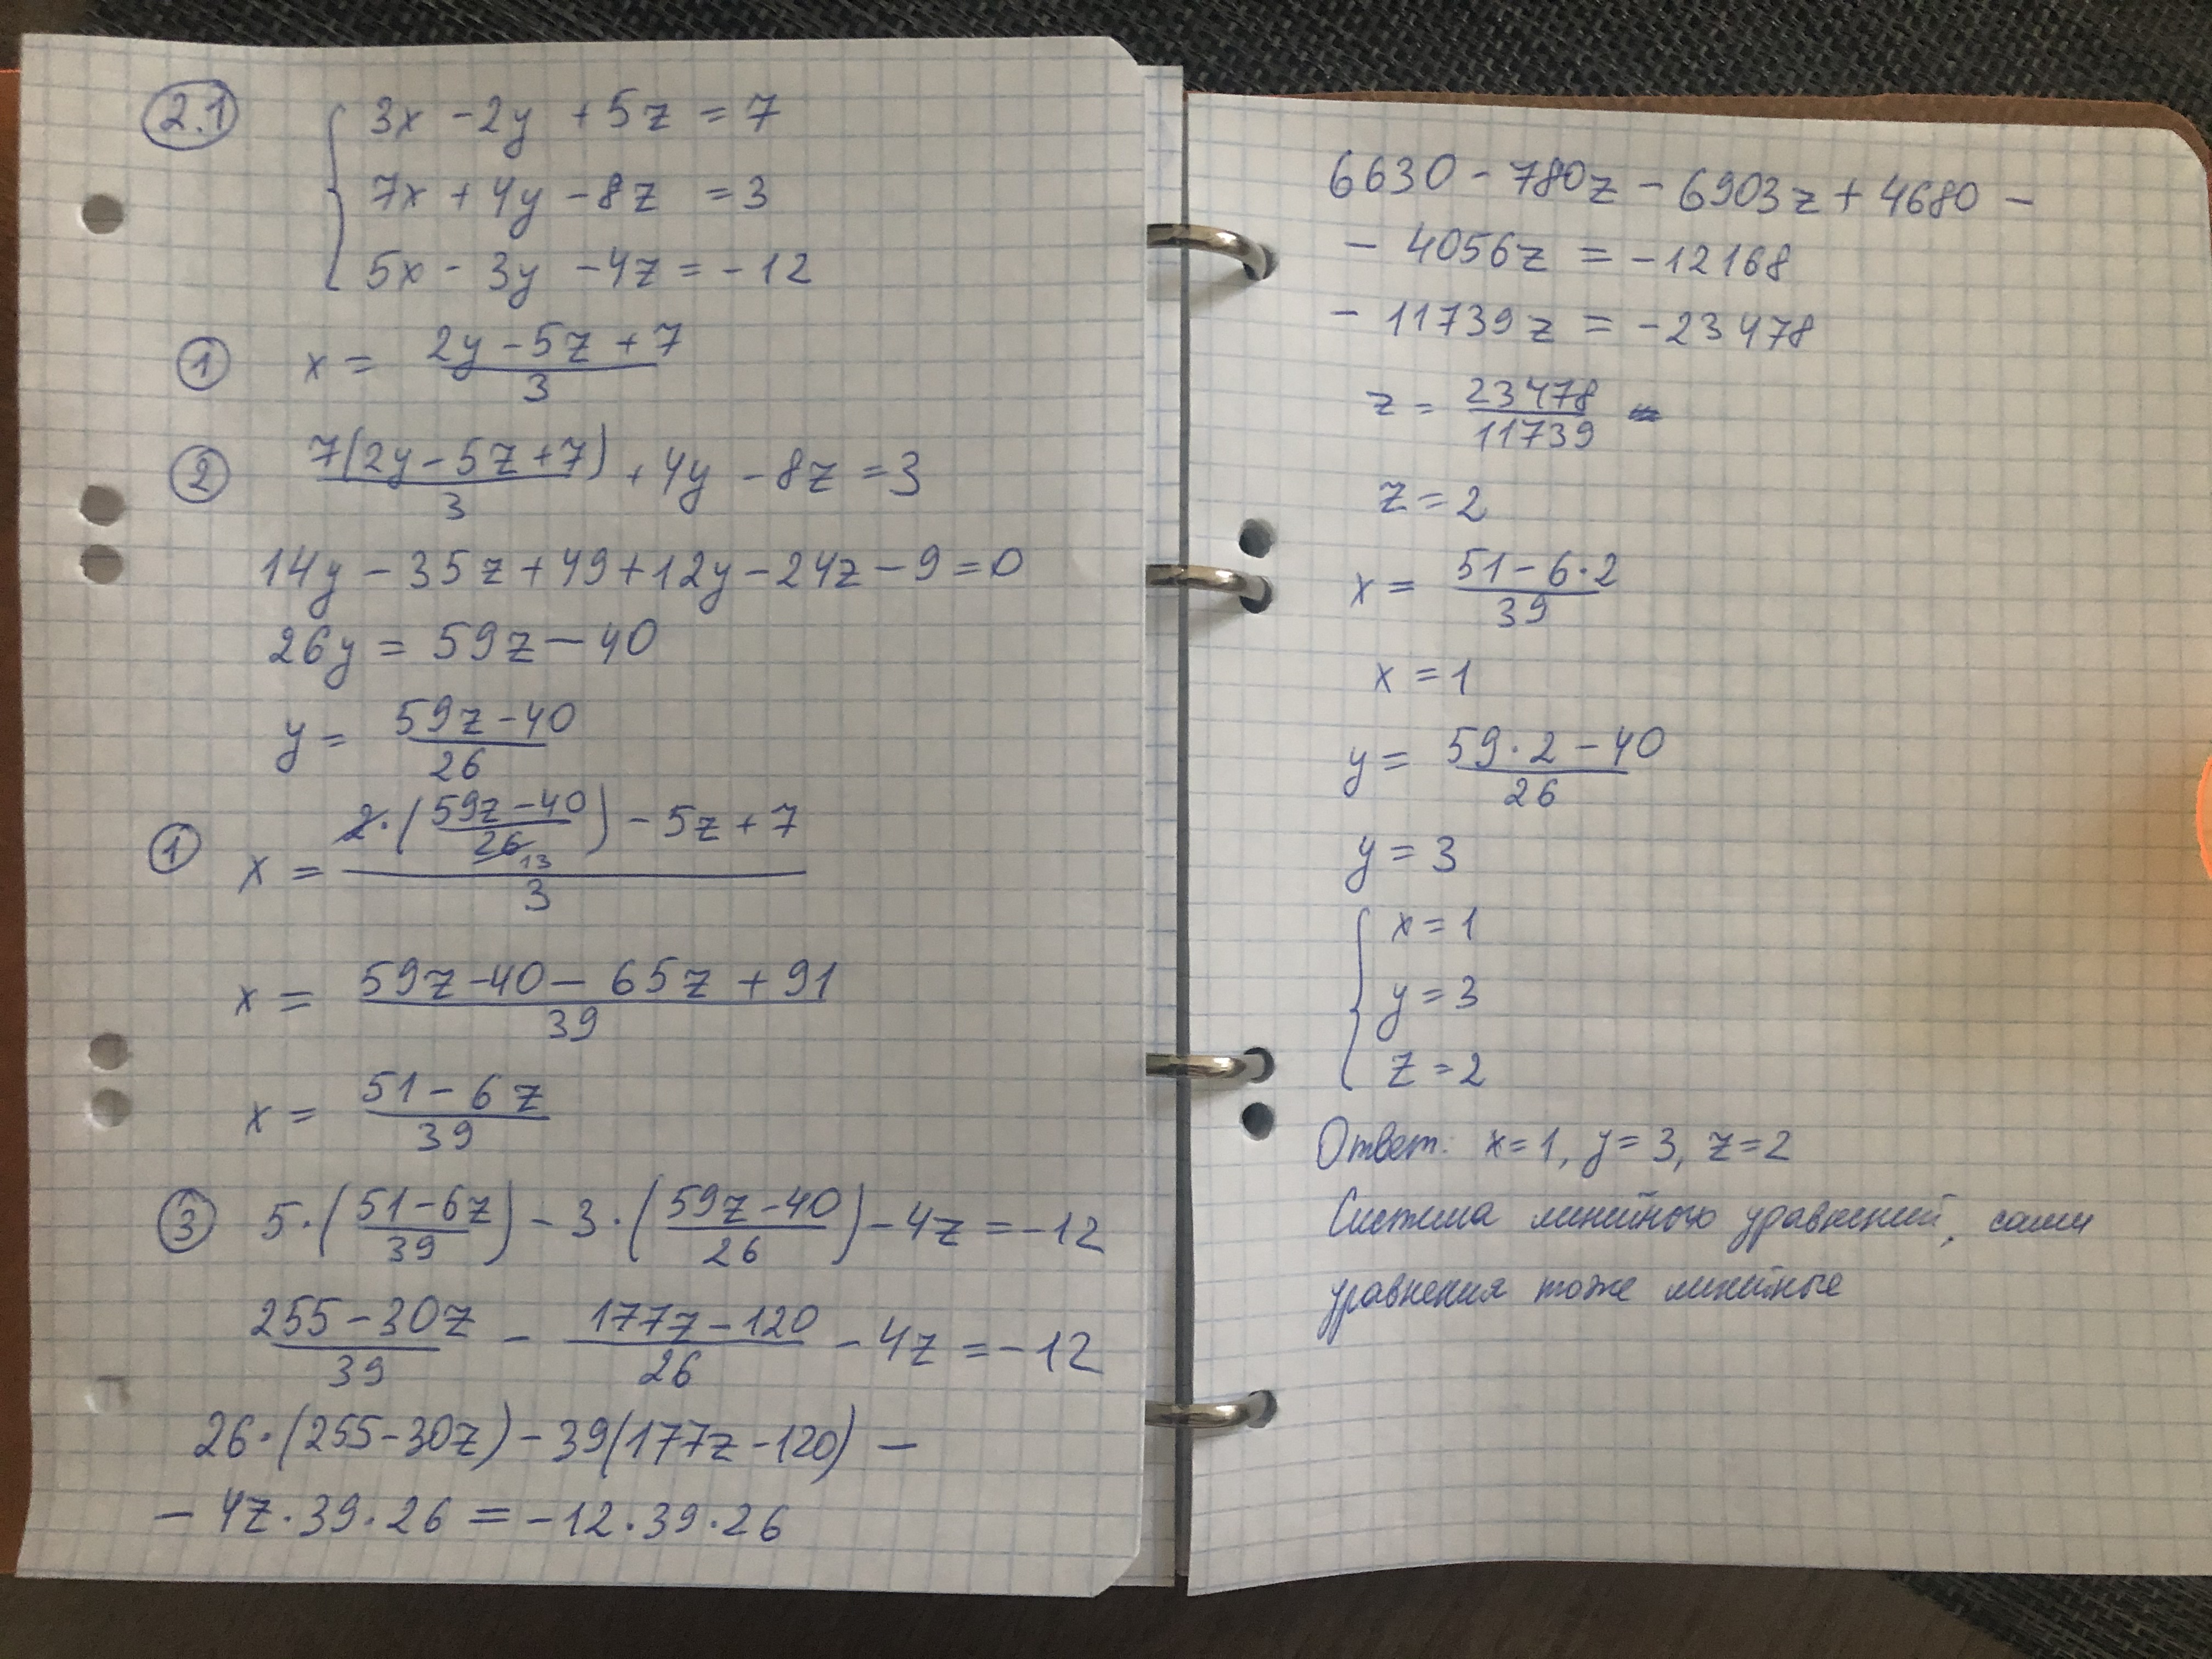 2.1
3x - 2y + 5z = 7
7x + 4y - 8z = 3
5x - 3y - 4z = -12
① x = (2y - 5z + 7)/3
② 7(2y - 5z + 7)/3 + 4y - 8z = 3
14y - 35z + 49 + 12y - 24z - 9 = 0
26y = 59z - 40
y = (59z - 40)/26
① x = (2·((59z - 40)/26 13) - 5z + 7)/3
x = (59z - 40 - 65z + 91)/39
x = (51 - 6z)/39
③ 5·((51 - 6z)/39) - 3·((59z - 40)/26) - 4z = -12
(255 - 30z)/39 - (177z - 120)/26 - 4z = -12
26·(255 - 30z) - 39(177z - 120) -
- 4z·39·26 = -12·39·26
6630 - 780z - 6903z + 4680 -
- 4056z = -12168
- 11739z = -23478
z = 23478/11739
z = 2
x = (51 - 6·2)/39
x = 1
y = (59·2 - 40)/26
y = 3
x = 1
y = 3
z = 2
Ответ: x = 1, y = 3, z = 2
Система линейного уравнений, сами
уравнения тоже линейные